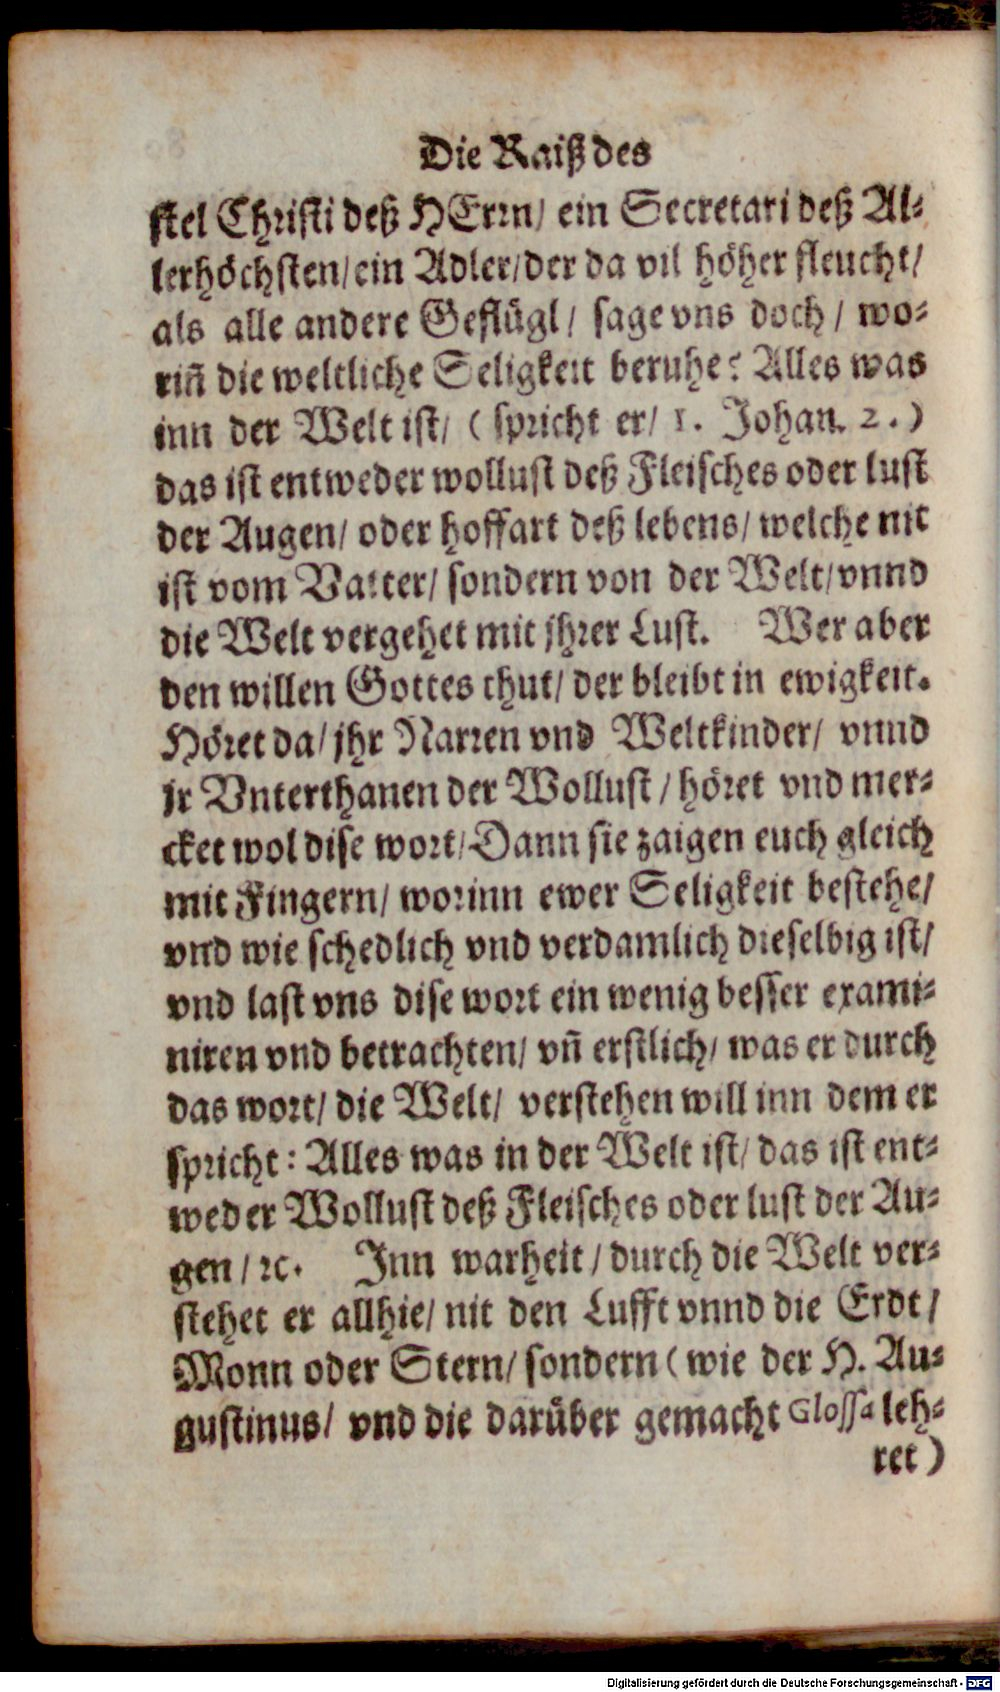 Die Raiß des
stel Christi deß HErrn/ ein Secretari deß Al-
lerhöchsten/ ein Adler/ der da vil höher fleucht/
als alle andere Geflügl/ sage vns doch/ wo-
riñ die weltliche Seligkeit beruhe? Alles was
inn der Welt ist/ (spricht er/ 1. Johan. 2.)
das ist entweder wollust deß Fleisches oder lust
der Augen/ oder hoffart deß lebens/ welche nit
ist vom Vatter/ sondern von der Welt/ vnnd
die Welt vergehet mit jhrer Lust. Wer aber
den willen Gottes thut/ der bleibt in ewigkeit.
Höret da/ jhr Narren vnd Weltkinder/ vnnd
jr Vnterthanen der Wollust/ höret vnd mer-
cket wol dise wort/ Dann sie zaigen euch gleich
mit Fingern/ worinn ewer Seligkeit bestehe/
vnd wie schedlich vnd verdamlich dieselbig ist/
vnd last vns dise wort ein wenig besser exami-
niren vnd betrachten/ vñ erstlich/ was er durch
das wort/ die Welt/ verstehen will inn dem er
spricht: Alles was in der Welt ist/ das ist ent-
weder Wollust deß Fleisches oder lust der Au-
gen/ ꝛc. Inn warheit/ durch die Welt ver-
stehet er allhie/ nit den Lufft vnnd die Erdt/
Monn oder Stern/ sondern (wie der H. Au-
gustinus/ vnd die darüber gemacht Glossa leh-
ret)
Digitalisierung gefördert durch die Deutsche Forschungsgemeinschaft - DFG